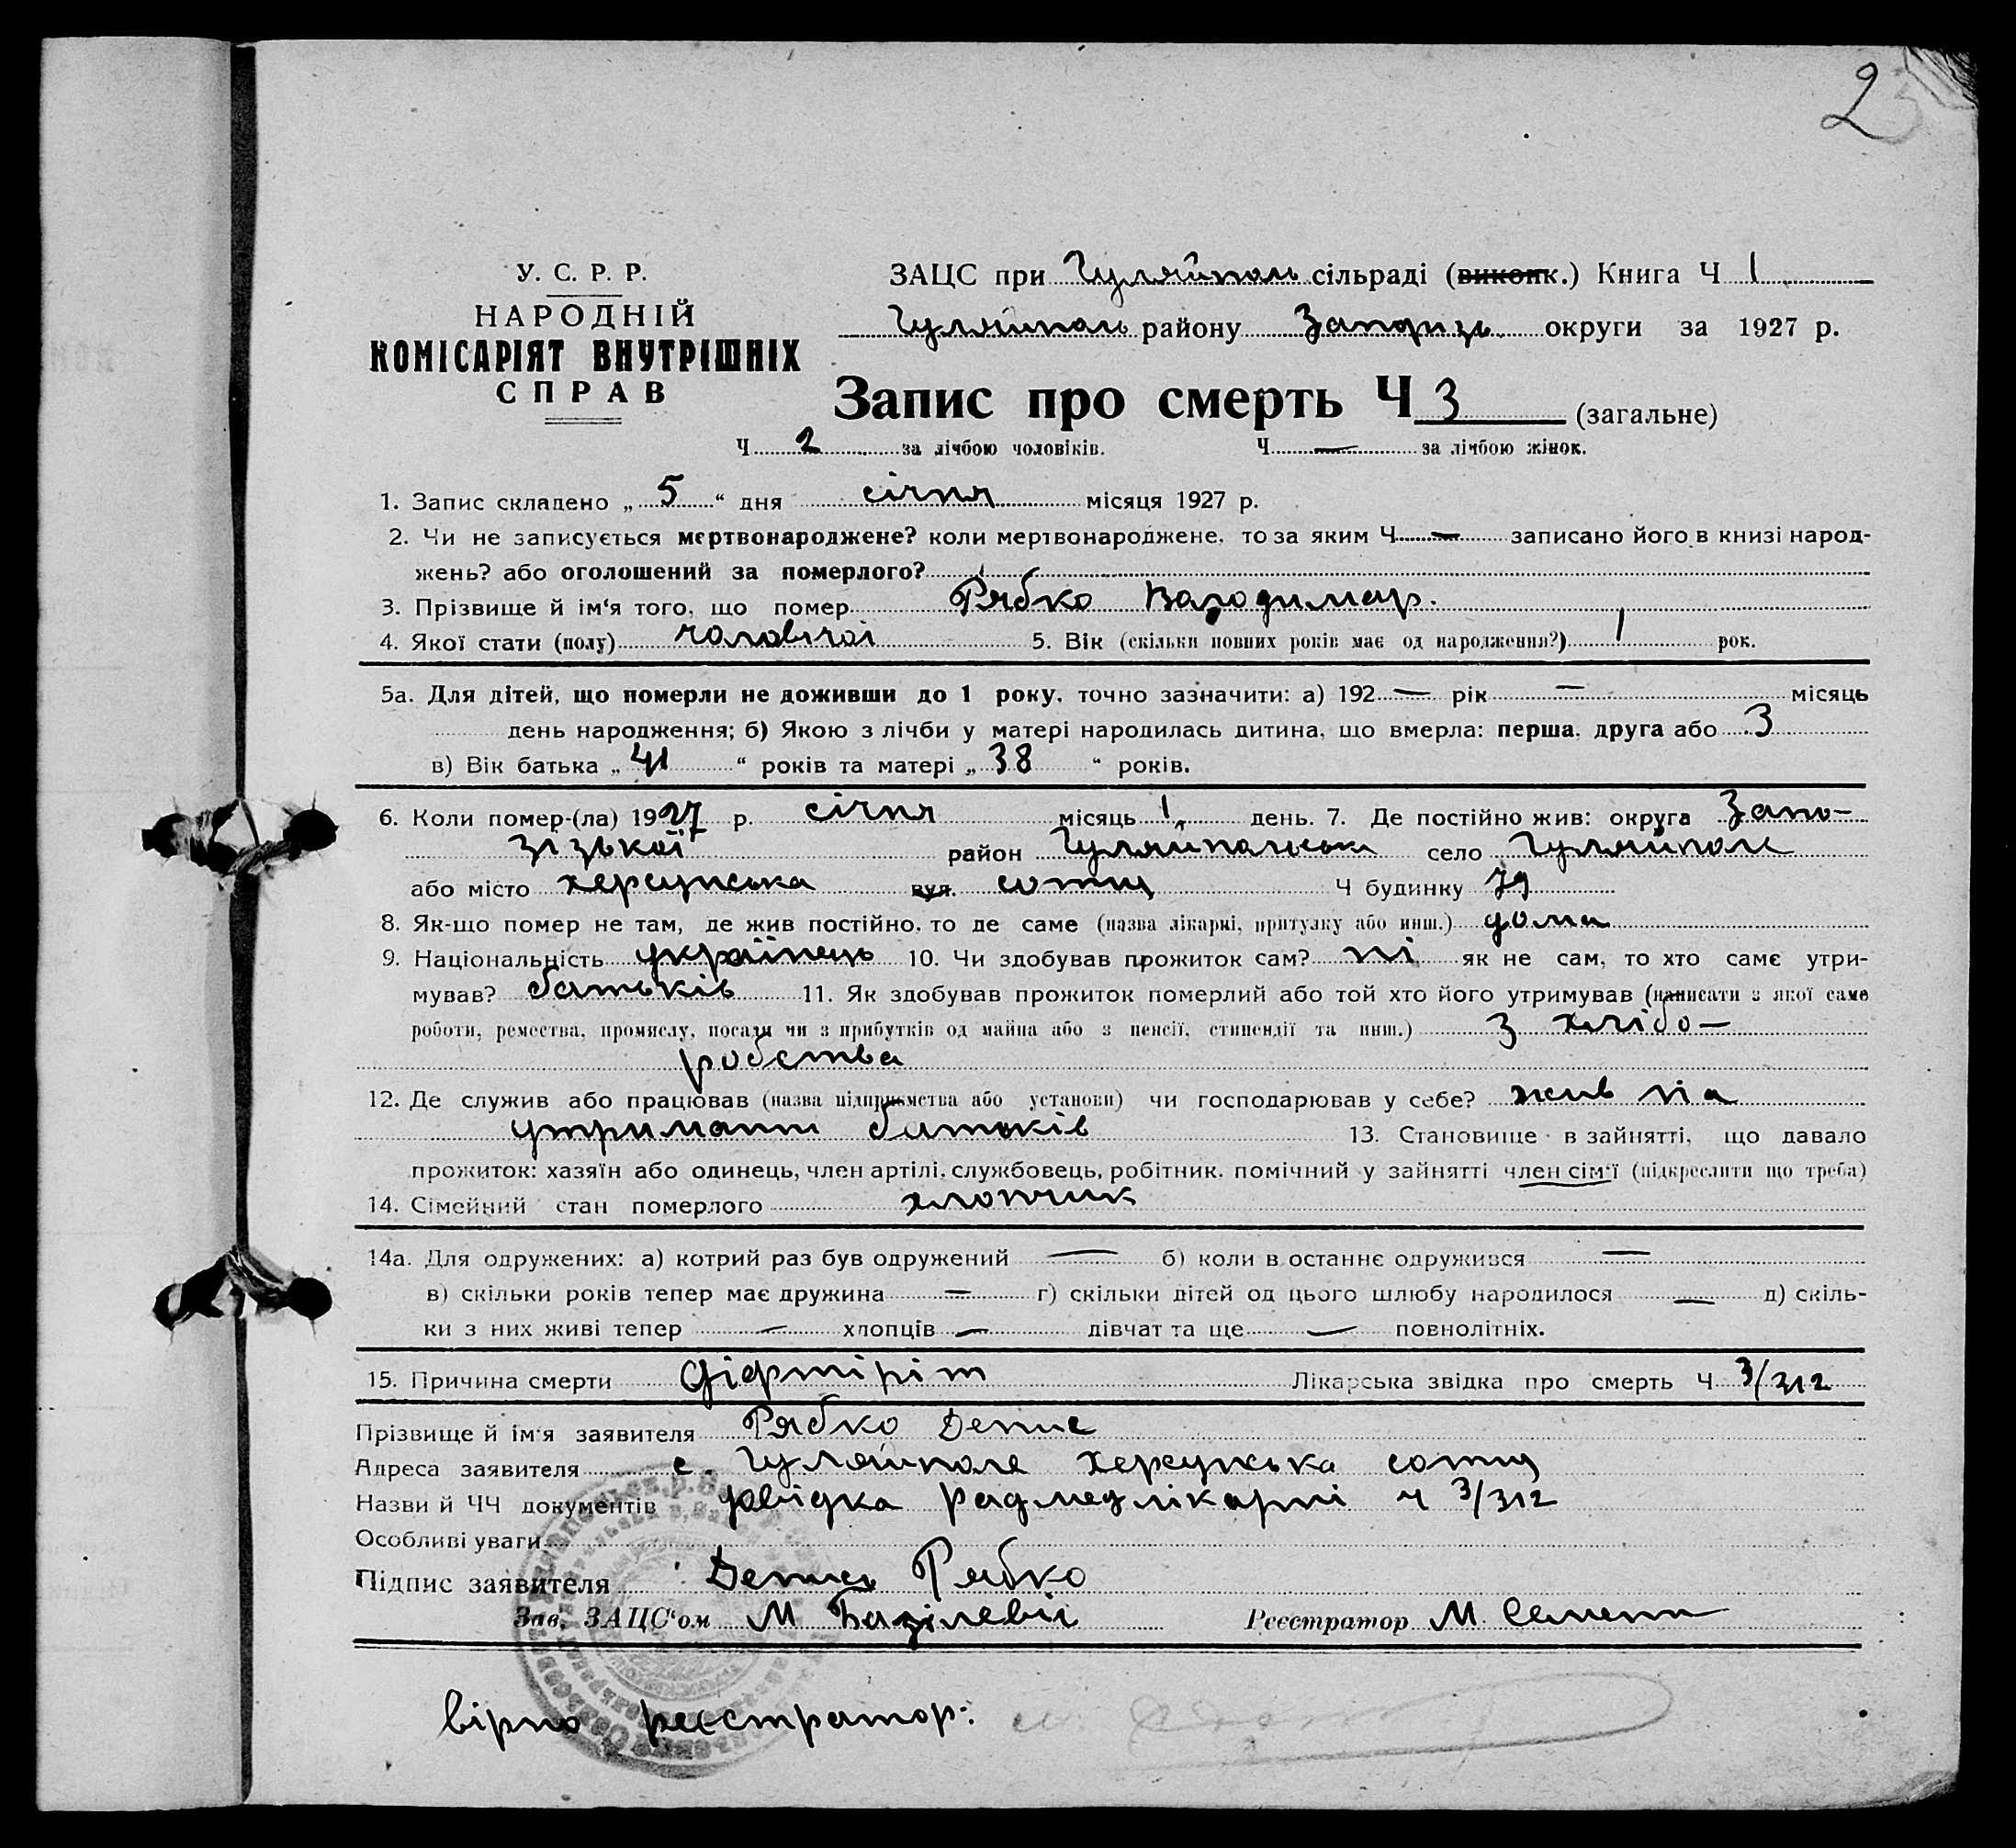 2
У. С. Р. Р.
НАРОДНІЙ
КОМІСАРІЯТ ВНУТРІШНІХ
СПРАВ
ЗАЦС при Гуляйполь сільраді (виконк.) Книга Ч 1
Гуляйполь району Запоризь округи за 1927 р.
Запис про смерть Ч 3 (загальне)
Ч 2 за лічбою чоловіків. Ч — за лічбою жінок.
1. Запис складено „ 5 “ дня січня місяця 1927 р.
2. Чи не записується мертвонароджене? коли мертвонароджене, то за яким Ч — записано його в книзі народ-
жень? або оголошений за померлого?
3. Прізвище й ім'я того, що помер Рябко Володимир.
4. Якої стати (полу) чоловічої 5. Вік (скільки повних років має од народження?) 1 рок.
5а. Для дітей, що померли не доживши до 1 року, точно зазначити: а) 192 — рік — місяць
день народження; б) Якою з лічби у матері народилась дитина, що вмерла: перша, друга або 3
в) Вік батька „ 41 “ років та матері „ 38 “ років.
6. Коли помер-(ла) 1927 р. січня місяць 1 день. 7. Де постійно жив: округа Запо-
зізької район Гуляйпольськ село Гуляйполе
або місто херсунська вул. сотня Ч будинку 79
8. Як-що помер не там, де жив постійно, то де саме (назва лікарні, притулку або инш.) дома
9. Національність українець 10. Чи здобував прожиток сам? ні як не сам, то хто саме утри-
мував? батьків 11. Як здобував прожиток померлий або той хто його утримував (написати з якої саме
роботи, ремества, промислу, посади чи з прибутків од майна або з пенсії, стипендії та инш.) З хлібо-
робства
12. Де служив або працював (назва підприємства або установи) чи господарював у себе? жив на
утриманні батьків 13. Становище в зайнятті, що давало
прожиток: хазяїн або одинець, член артілі, службовець, робітник, помічний у зайнятті член сім'ї (підкреслити що треба)
14. Сімейний стан померлого хлопчик
14а. Для одружених: а) котрий раз був одружений — б) коли в останнє одружився —
в) скільки років тепер має дружина — г) скільки дітей од цього шлюбу народилося — д) скіль-
ки з них живі тепер — хлопців — дівчат та ще — повнолітніх.
15. Причина смерти діфтіріт Лікарська звідка про смерть Ч 3/312
Прізвище й ім'я заявителя Рябко Денис
Адреса заявителя с. Гуляйполе херсунська сотня
Назви й ЧЧ документів звідка радмедлікарні ч 3/312
Особливі уваги
Підпис заявителя Денис Рябко
Зав. ЗАЦС'ом М Базілевіч Реєстратор М. Семенн
вірно реєстратор: